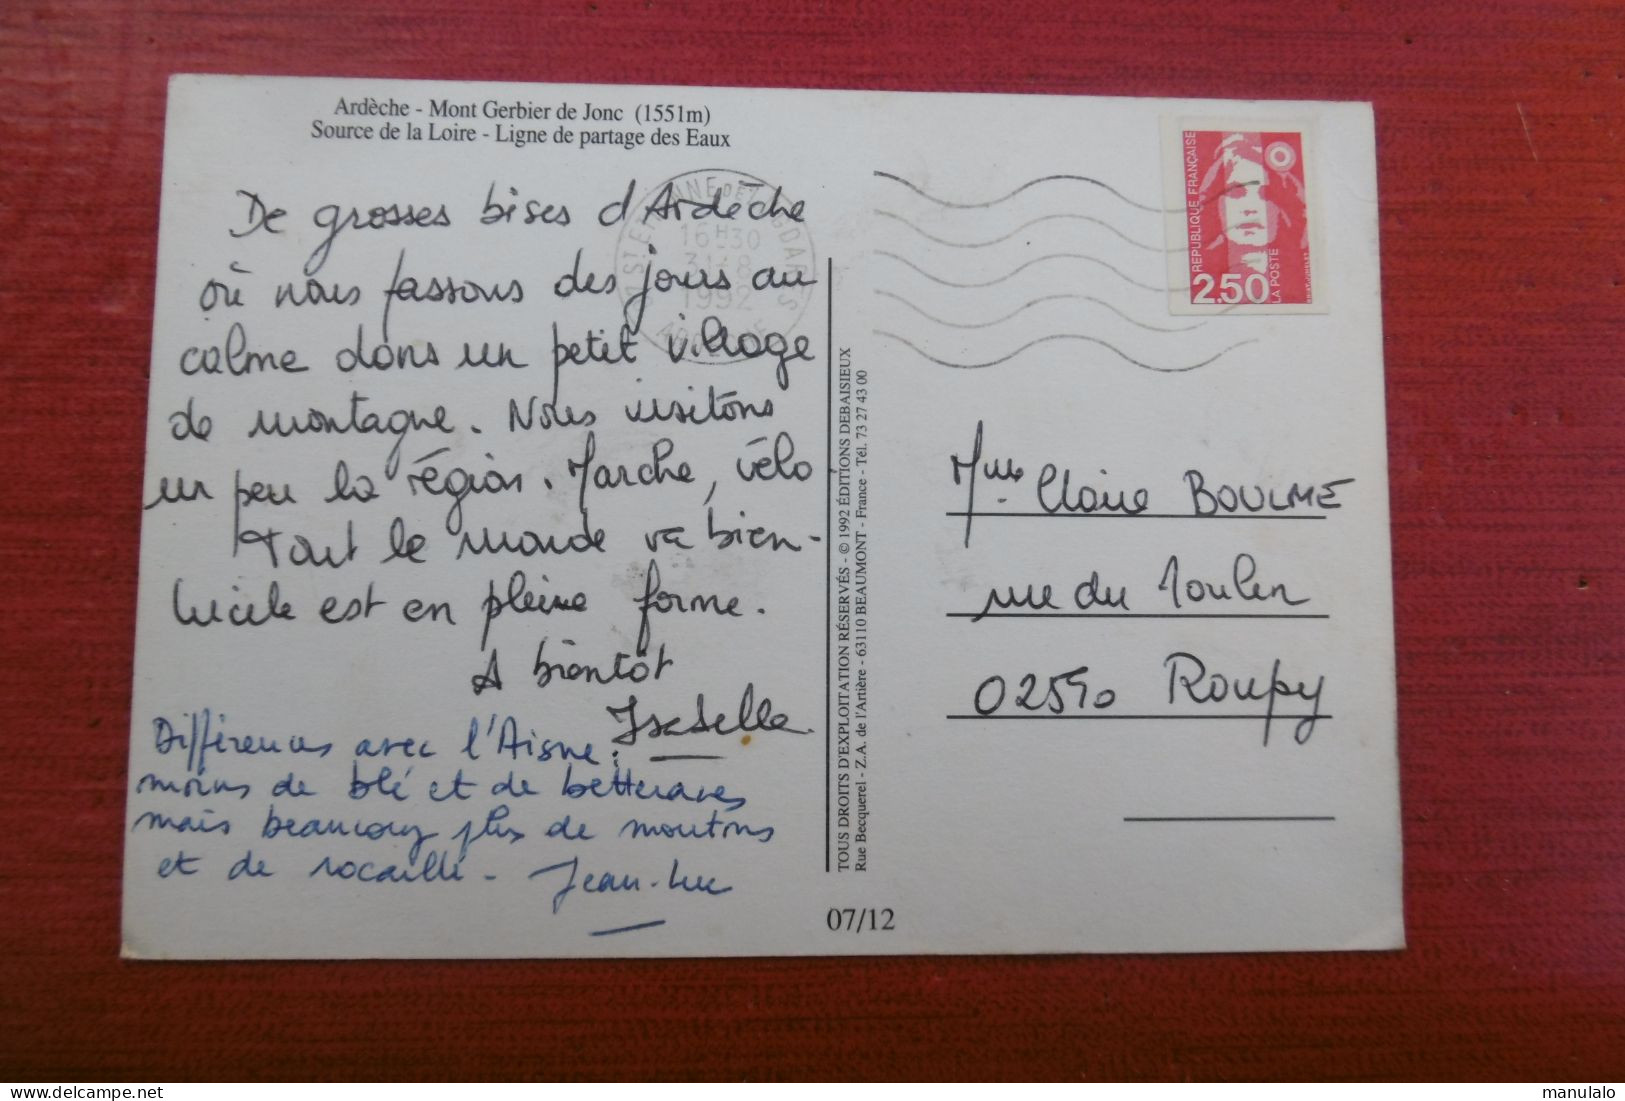 Ardèche - Mont Gerbier de Jonc (1551m)
Source de la Loire - Ligne de partage des Eaux
De grosses bises d'Ardèche
où nous passons des jours au
calme dans un petit village
de montagne. Nous visitons
un peu la région. Marche, vélo
Tout le monde va bien -
Lucile est en pleine forme.
A bientôt
Isabelle.
Différences avec l'Aisne :
moins de blé et de betteraves
mais beaucoup plus de moutons
et de rocaille - Jean-Luc
16H30
31-8
1992
ARDECHE
TOUS DROITS D'EXPLOITATION RÉSERVÉS - © 1992 ÉDITIONS DEBAISIEUX
Rue Becquerel - Z.A. de l'Artière - 63110 BEAUMONT - France - Tél. 73 27 43 00
07/12
REPUBLIQUE FRANÇAISE
2,50
LA POSTE
Mme Claire BOULME
rue du Moulin
02590 Roupy
manulalo